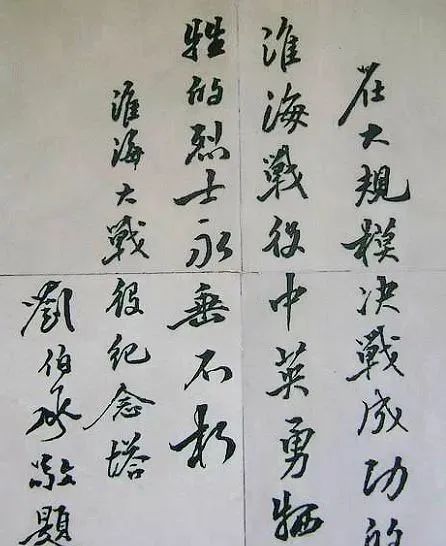 在大規模決戰成功的
淮海戰役中英勇牺
牲的烈士永垂不朽
淮海大戰役紀念塔
劉伯承敬題